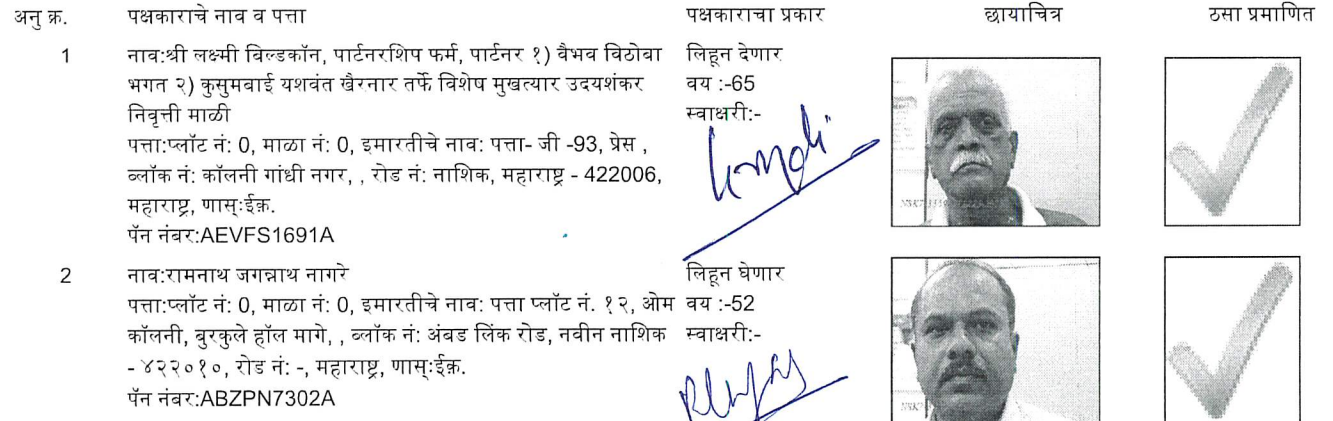 अनु क्र. पक्षकाराचे नाव व पत्ता पक्षकाराचा प्रकार छायाचित्र ठसा प्रमाणित
1 नाव:श्री लक्ष्मी बिल्डकॉन, पार्टनरशिप फर्म, पार्टनर १) वैभव विठोबा लिहून देणार
भगत २) कुसुमबाई यशवंत खैरनार तर्फे विशेष मुखत्यार उदयशंकर वय :-65
निवृत्ती माळी स्वाक्षरी:-
पत्ता:प्लॉट नं: 0, माळा नं: 0, इमारतीचे नाव: पत्ता- जी -93, प्रेस ,
ब्लॉक नं: कॉलनी गांधी नगर, , रोड नं: नाशिक, महाराष्ट्र - 422006,
महाराष्ट्र, णास्ःईक़.
पॅन नंबर:AEVFS1691A
2 नाव:रामनाथ जगन्नाथ नागरे लिहून घेणार
पत्ता:प्लॉट नं: 0, माळा नं: 0, इमारतीचे नाव: पत्ता प्लॉट नं. १२, ओम वय :-52
कॉलनी, बुरकुले हॉल मागे, , ब्लॉक नं: अंबड लिंक रोड, नवीन नाशिक स्वाक्षरी:-
- ४२२०१०, रोड नं: -, महाराष्ट्र, णास्ःईक़.
पॅन नंबर:ABZPN7302A